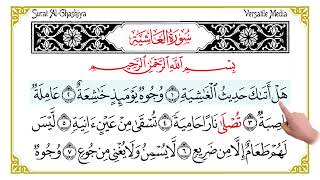 Surat Al-Ghashiya
Versatile Media
سُورَةُ الْغَاشِيَةِ
بِسْمِ اللَّهِ الرَّحْمَٰنِ الرَّحِيمِ
هَلْ أَتَىٰكَ حَدِيثُ الْغَٰشِيَةِ ١ وُجُوهٌ يَوْمَئِذٍ خَٰشِعَةٌ ٢ عَامِلَةٌ
نَّاصِبَةٌ ٣ تَصْلَىٰ نَارًا حَامِيَةً ٤ تُسْقَىٰ مِنْ عَيْنٍ ءَانِيَةٍ ٥ لَّيْسَ
لَهُمْ طَعَامٌ إِلَّا مِن ضَرِيعٍ ٦ لَّا يُسْمِنُ وَلَا يُغْنِي مِن جُوعٍ ٧ وُجُوهٌ